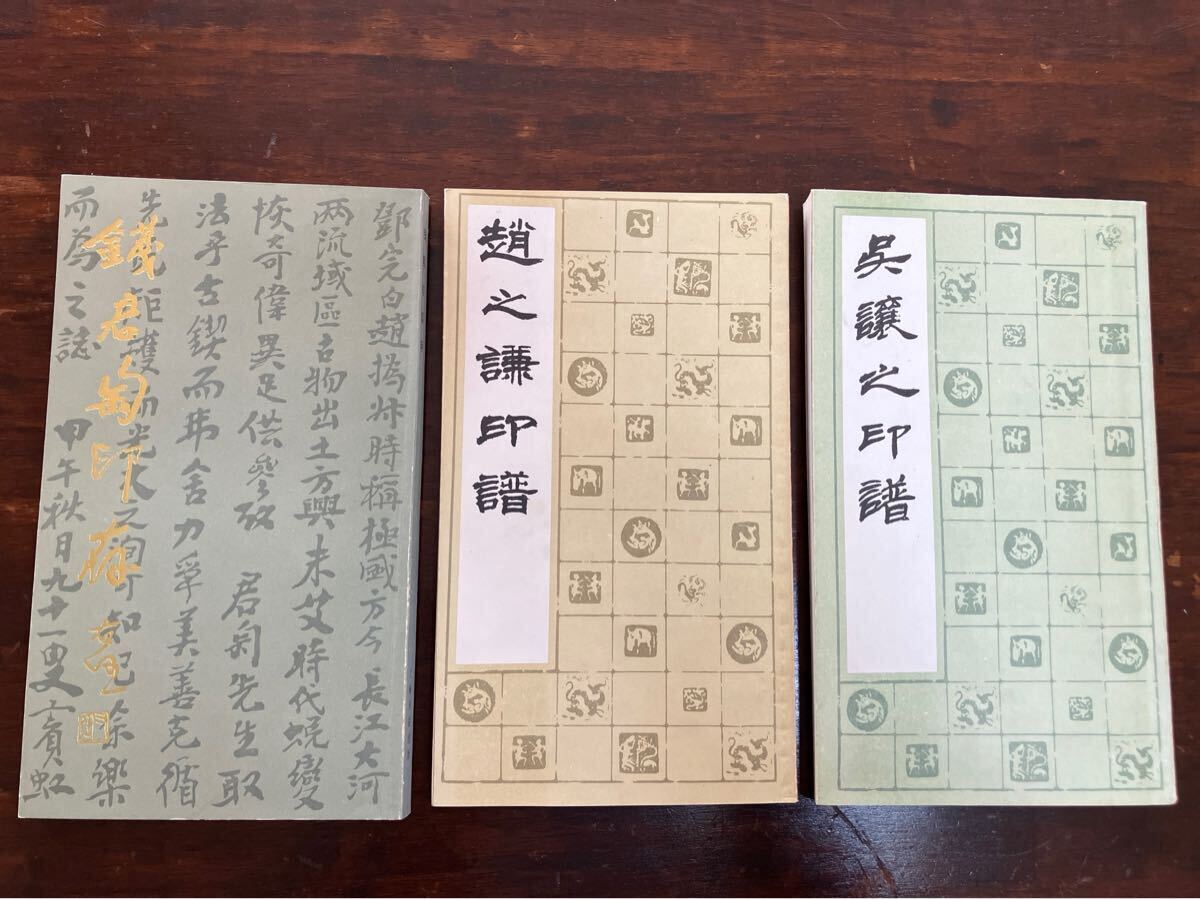 錢君匋印存
鄧完白趙撝叔時稱極盛方今長江大河
两流域區古物出土方興未艾時代蜕變
恢奇偉異足供參攷 君匋先生取
法乎古鍥而弗舍力爭美善克循
先民矩矱而光大之洵可知已余樂
而為之誌 甲午秋日九十一叟賓虹
趙之謙印譜
吳讓之印譜